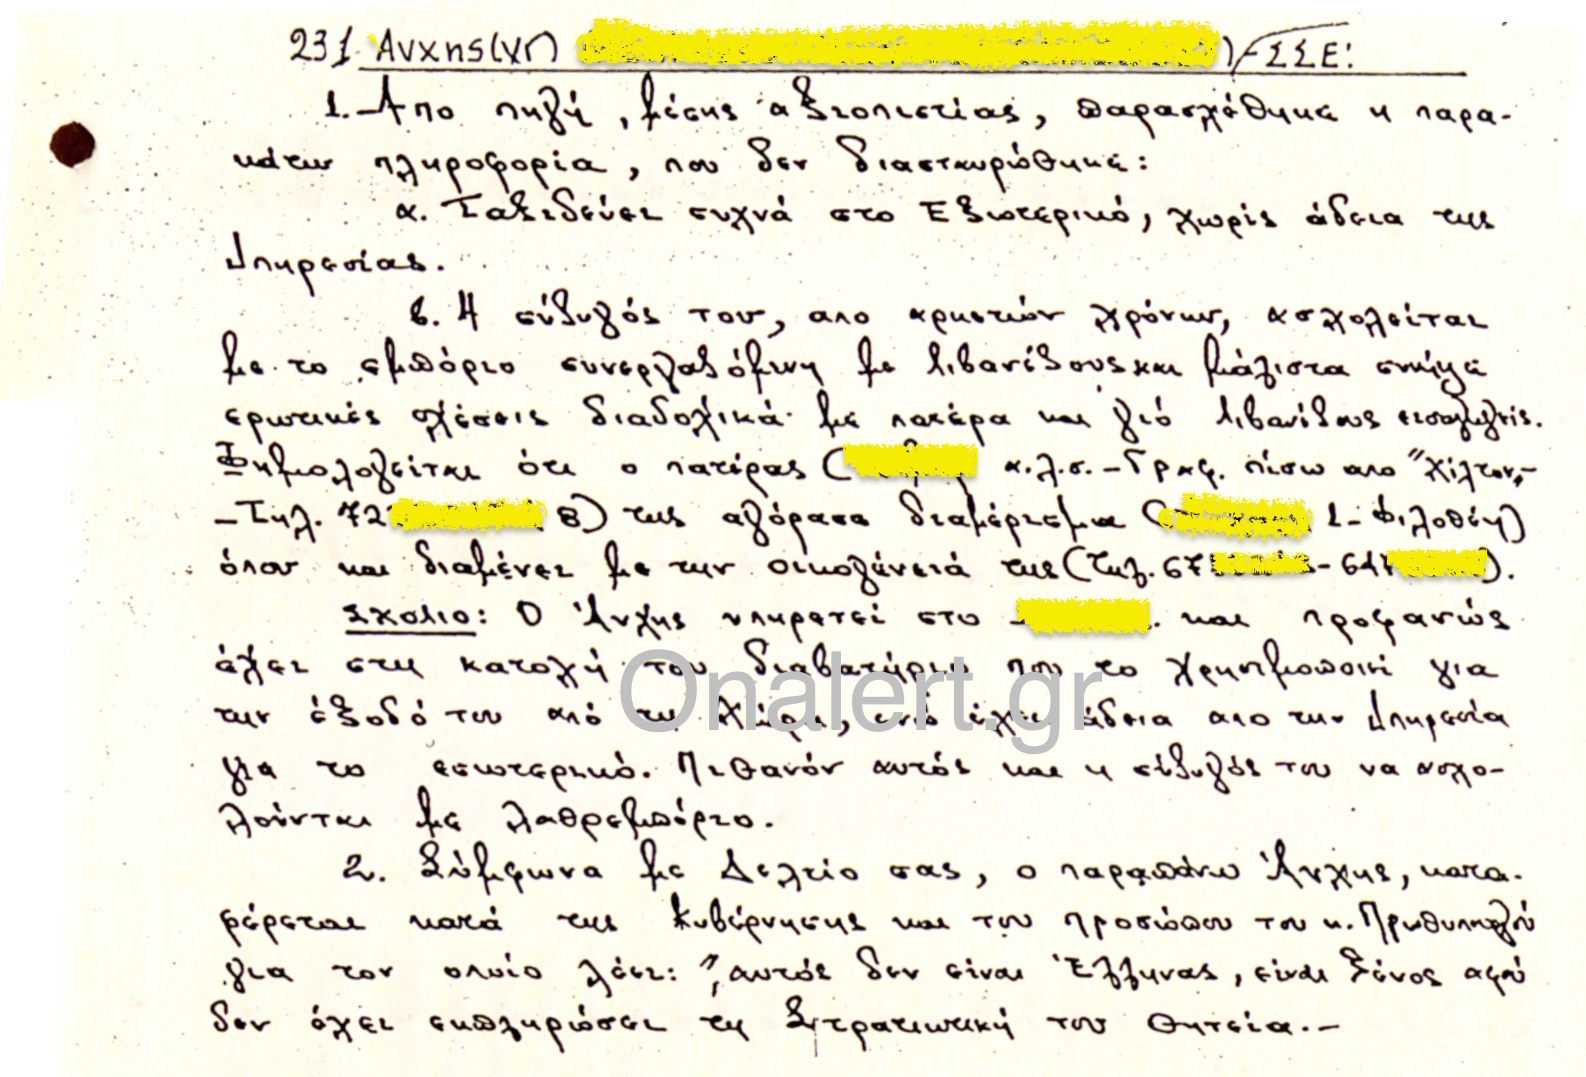 231 Ανχης(ΥΓ ) - ΣΣΕ:
1.-Απο πηγή, μέσης αξιοπιστίας, παρασχέθηκε η παρα-
κάτω πληροφορία, που δεν διασταυρώθηκε:
α. Ταξιδεύει συχνά στο Εξωτερικό, χωρίς άδεια της
Υπηρεσίας.
β. Η σύζυγός του, απο αρκετών χρόνων, ασχολείται
με το εμπόριο συνεργαζόμενη με Λιβανέζους και μάλιστα συνήψε
ερωτικές σχέσεις διαδοχικά με πατέρα και γιό Λιβανέζους εισαγωγείς.
Φημολογείται ότι ο πατέρας ( κ.λ.σ. - Γραφ. πίσω απο "Χίλτον"-
-Τηλ. 72 8) της αγόρασε διαμέρισμα ( 1- Φιλοθέη)
όπου και διαμένει με την οικογένειά της (τηλ. 67 - 647 ).
Σχόλιο: Ο Ανχης υπηρετεί στο . και προφανώς
έχει στη κατοχή του διαβατήριο που το χρησιμοποιεί για
την έξοδό του από τη Χώρα, ενώ έχει άδεια απο την Υπηρεσία
για το εσωτερικό. Πιθανόν αυτός και η σύζυγός του να ασχο-
λούνται με λαθρεμπόριο.
2. Σύμφωνα με Δελτίο σας, ο παραπάνω Ανχης, κατα-
φέρεται κατά της Κυβέρνησης και του προσώπου του κ. Πρωθυπουργού
για τον οποίο λέει: "αυτός δεν είναι Έλληνας, είναι ξένος αφού
δεν έχει εκπληρώσει τη Στρατιωτική του θητεία.-
Onalert.gr